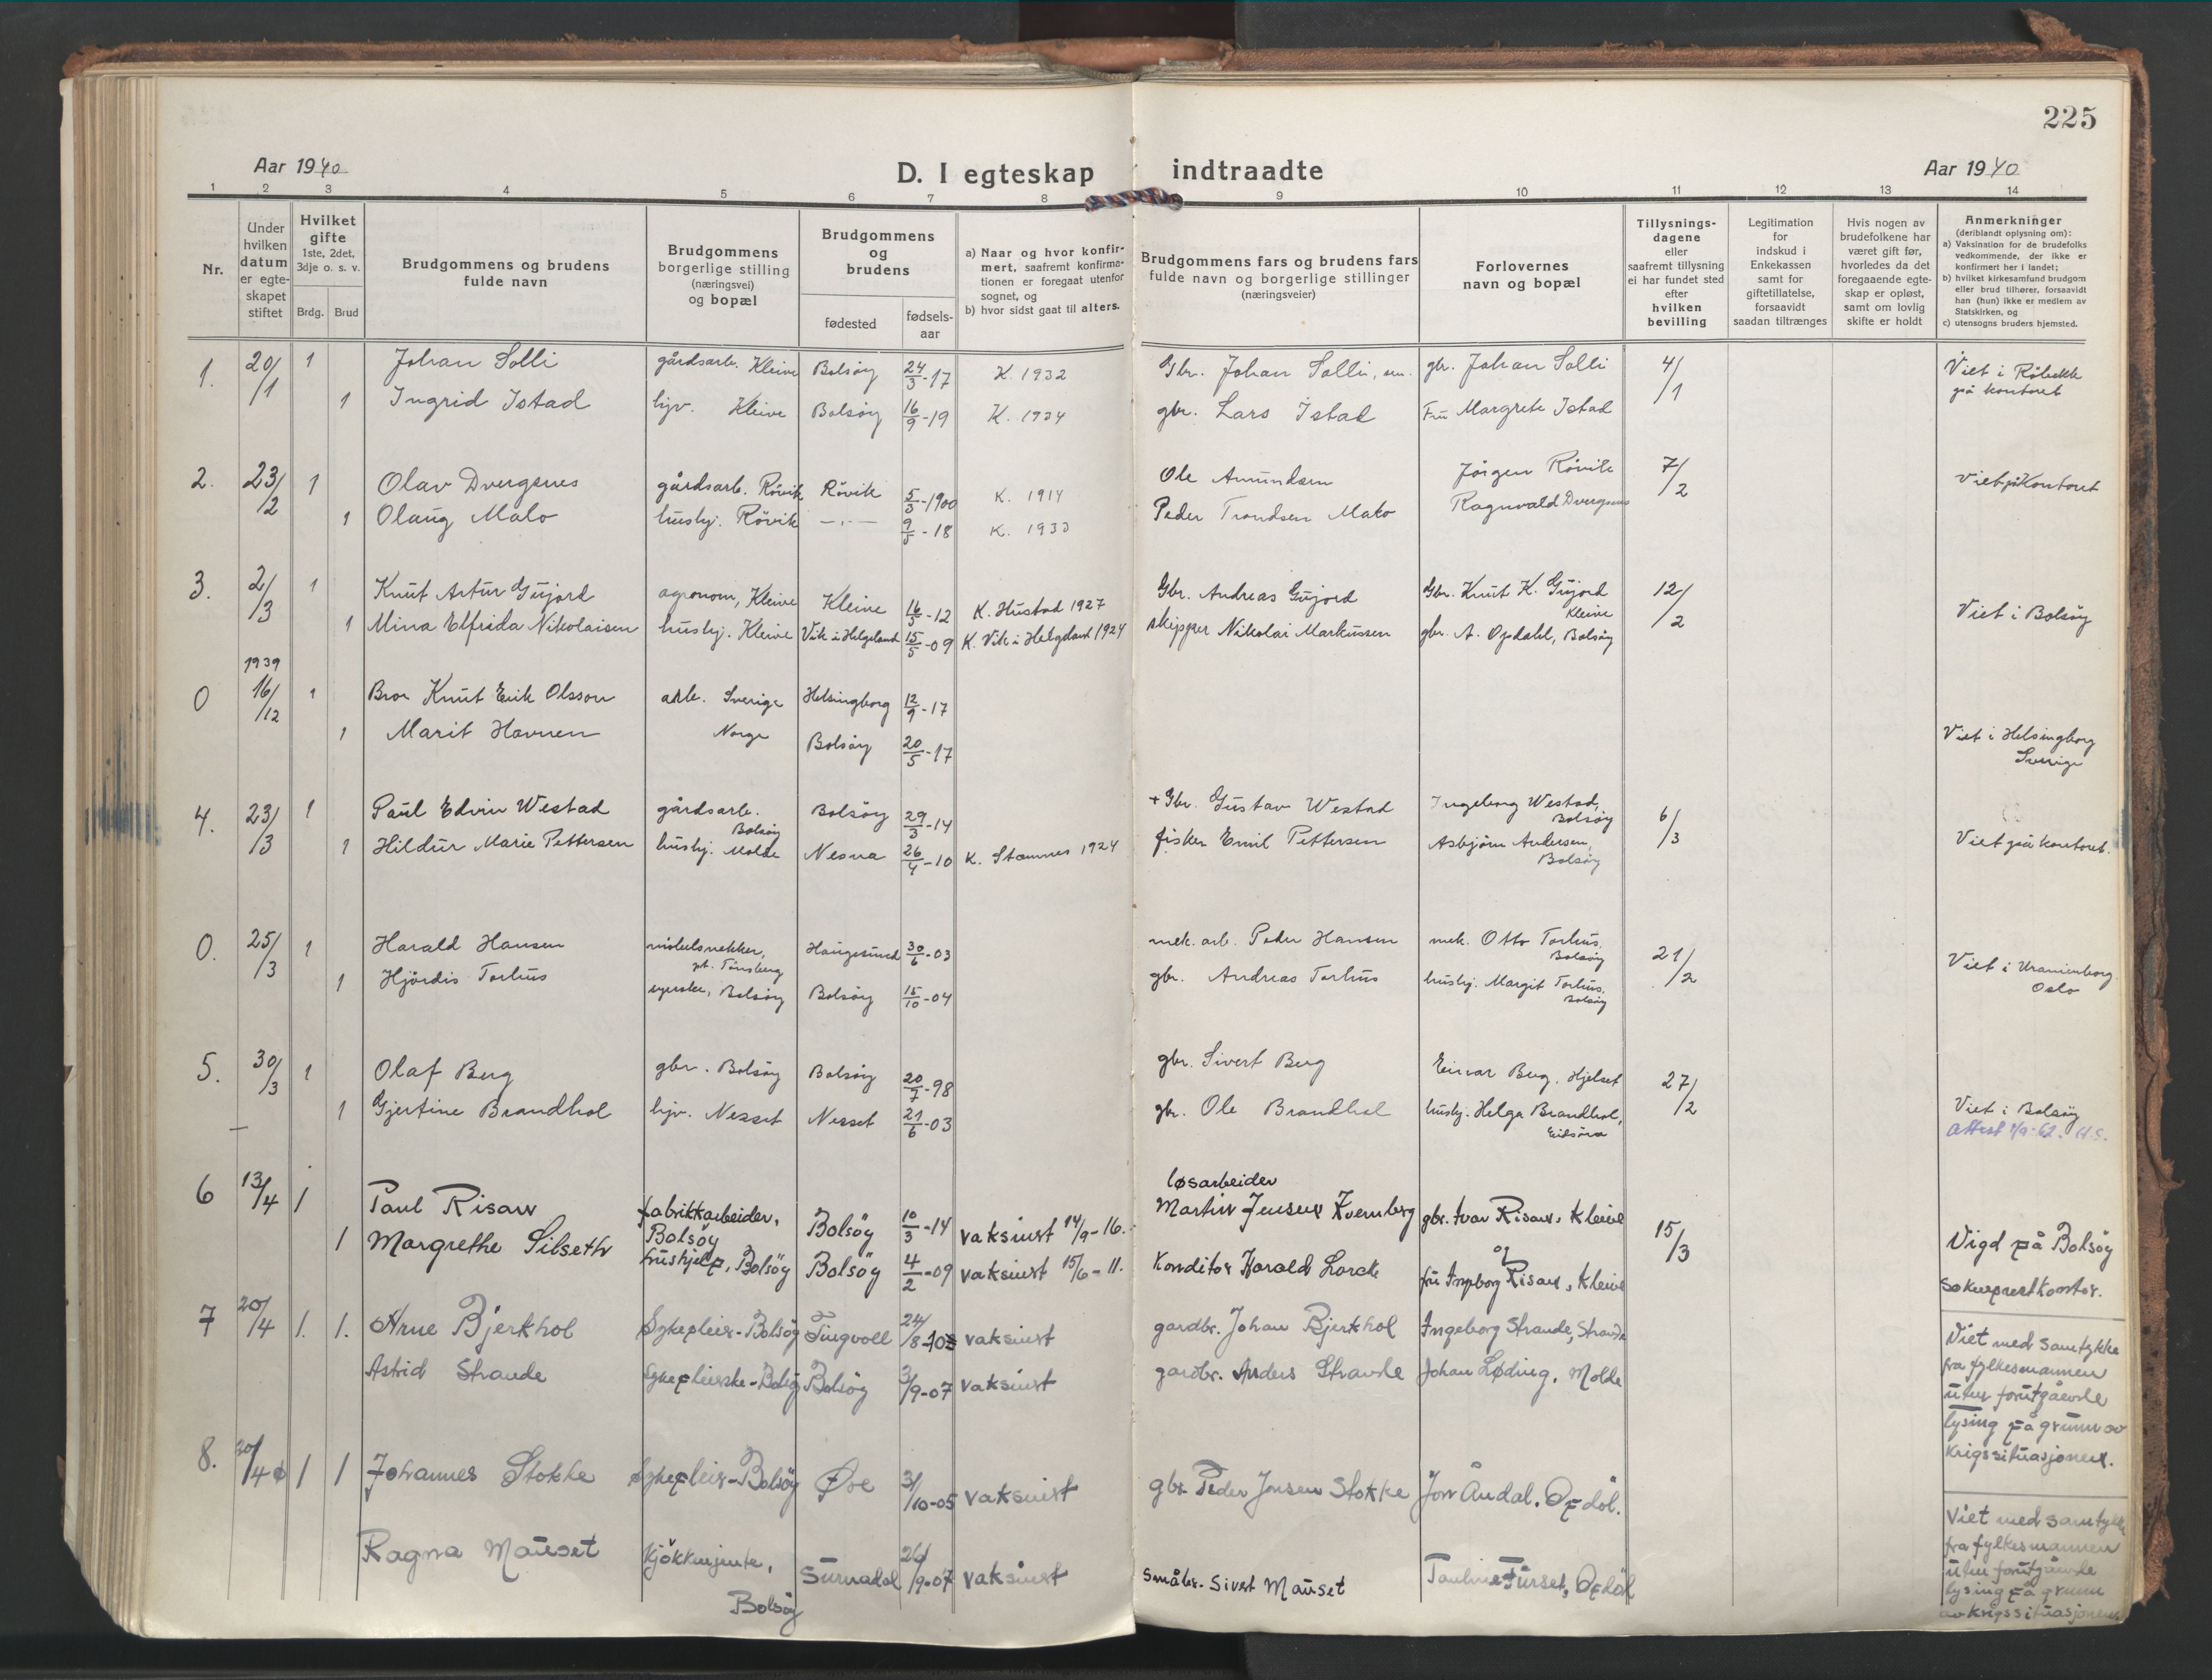 225
Aar 1940
D. I egteskap indtraadte
Aar 1940
1 2 3 4 5 6 7 8 9 10 11 12 13 14
Nr.
Under hvilken datum er egteskapet stiftet
Hvilket gifte 1ste, 2det, 3dje o. s. v.
Brdg. Brud
Brudgommens og brudens fulde navn
Brudgommens borgerlige stilling (næringsvei) og bopæl
Brudgommens og brudens
fødested
fødsels-aar
a) Naar og hvor konfirmert, saafremt konfirmationen er foregaat utenfor sognet, og
b) hvor sidst gaat til alters.
Brudgommens fars og brudens fars fulde navn og borgerlige stillinger (næringsveier)
Forlovernes navn og bopæl
Tillysningsdagene eller saafremt tillysning ei har fundet sted efter hvilken bevilling
Legitimation for indskud i Enkekassen samt for giftetillatelse, forsaavidt saadan tiltrænges
Hvis nogen av brudefolkene har været gift før, hvorledes da det foregaaende egteskap er opløst, samt om lovlig skifte er holdt
Anmerkninger (deriblandt oplysning om):
a) Vaksination for de brudefolks vedkommende, der ikke er konfirmert her i landet;
b) hvilket kirkesamfund brudgom eller brud tilhører, forsaavidt han (hun) ikke er medlem av Statskirken, og
c) utensogns bruders hjemsted.
1. 20/1 1 Johan Solli gårdsarb. Kleive Bolsöy 24/3-17 K. 1932 Gbr. Johan Solli, gbr. Johan Solli 4/1 Viet i Röbekk på kontoret
1 Ingrid Istad hjv. Kleive Bolsöy 16/9-19 K. 1934 gbr. Lars Istad Fru Margrete Istad
2. 23/2 1 Olav Dvergsnes gårdsarb. Rövik Rövik 5/3-1900 K. 1914 Ole Amundsen Jörgen Rövik 7/2 Viet på Kontoret
1 Olaug Malo hushj. Rövik —"— 9/5-18 K. 1933 Peder Trondsen Malo Ragnvald Dvergsnes
3. 2/3 1 Knut Artur Gujord agronom, Kleive Kleive 16/5-12 K. Hustad 1927 Gbr. Andreas Gujord Gbr. Knut K. Gujord Kleive 12/2 Viet i Bolsöy
1 Mina Elfrida Nikolaisen hushj. Kleive Vik i Helgeland 15/5-09 K. Vik i Helgeland 1924 skipper Nikolai Markussen gbr. A. Opdahl, Bolsöy
1939
0 16/12 1 Bror Knut Erik Olsson arb. Sverige Helsingborg 12/9-17
1 Marit Havnen Norge Bolsöy 20/5-17 Viet i Helsingborg Sverige
4. 23/3 1 Paul Edvin Westad gårdsarb. Bolsöy Bolsöy 29/3-14 + Gbr. Gustav Westad Ingeborg Westad, Bolsöy 6/3 Viet på kontoret.
1 Hildur Marie Pettersen hushj. Molde Nesna 26/4-10 K. Stamnes 1924 fisker Emil Pettersen Asbjörn Andersen, Bolsöy
0. 25/3 1 Harald Hansen möbelsnekker, Tönsberg Haugesund 30/6-03 mek. arb. Peder Hansen mek. Otto Torhus, Bolsöy 21/2 Viet i Uranienborg Oslo
1 Hjördis Torhus syerske, Bolsöy Bolsöy 15/10-04 gbr. Andreas Torhus hushj. Margit Torhus, Bolsöy
5. 30/3 1 Olaf Berg gbr. Bolsöy Bolsöy 20/7-98 gbr. Sivert Berg Einar Berg, Hjelset 27/2
1 Gjertine Brandhol hjv. Nesset Nesset 21/6-03 gbr. Ole Brandhol hushj. Helga Brandhol, Eidsöra Viet i Bolsöy
Attest 1/9-62. H.S.
6 13/4 1 Paul Risan fabrikkarbeider, Bolsöy Bolsöy 10/3-14 vaksinert 14/9-16. løsarbeider Martin Jensen Kvernberg gbr. Ivar Risan, Kleive 15/3 Vigd på Bolsöy sokneprestkontor.
1 Margrethe Silseth hushjelp, Bolsöy Bolsöy 4/2-09 vaksinert 15/6-11. Konditor Harald Lorck og fru Ingeborg Risan, Kleive
7 20/4 1. 1. Arne Bjerkhol Sykepleier-Bolsöy Tingvoll 24/8-103 vaksinert gardbr. Johan Bjerkhol Ingeborg Strande, Strande Viet med samtykke fra fylkesmannen uten forutgående lysing på grunn av krigssituasjonen.
Astrid Strande Sykepleierske-Bolsöy Bolsöy 3/9-07 vaksinert gardbr. Anders Strande Johan Løding, Molde
8. 20/4 1 1 Johannes Stokke Sykepleier-Bolsöy Øre 31/10-05 vaksinert gbr. Peder Jonsen Stokke Jon Åndal, Opdöl. Viet med samtykke fra fylkesmannen uten forutgående lysing på grunn av krigssituasjonen.
Ragna Mauset Kjökkenjente, Bolsöy Surnadal 26/9-07 vaksinert Småbr. Sivert Mauset Pauline Furset, Opdöl